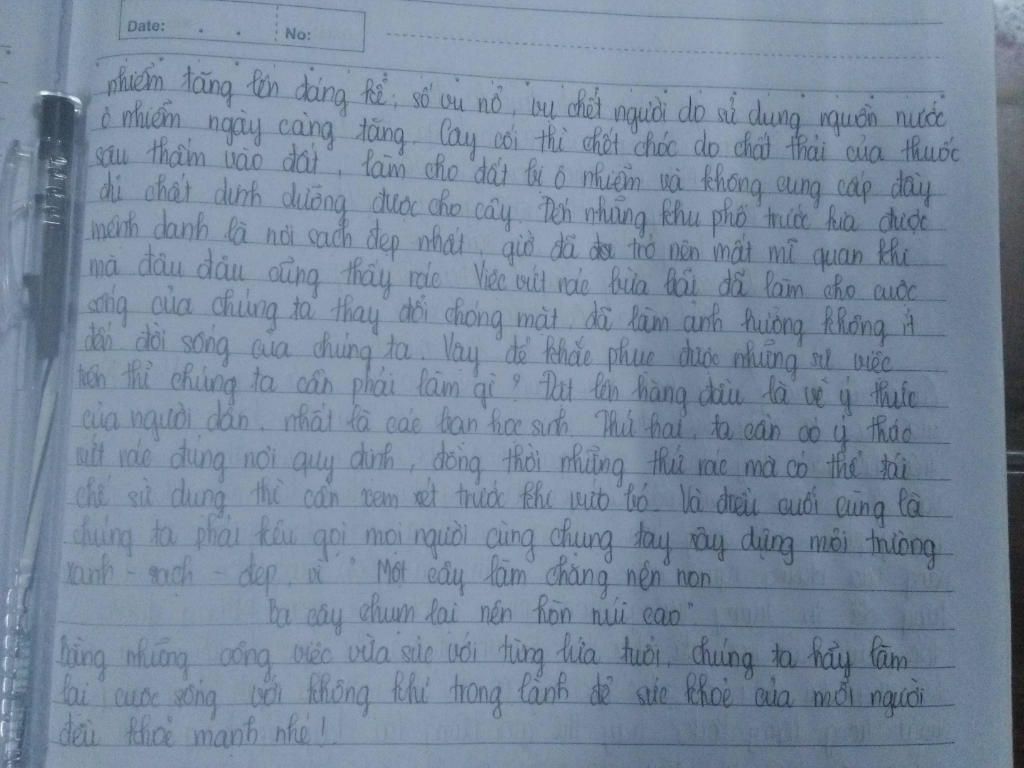 Date: . . No:
nhiễm tăng lên đáng kể, số vụ nổ, vụ chết người do sử dụng nguồn nước
ô nhiễm ngày càng tăng. Cây cối thì chết chóc do chất thải của thuốc
sâu thấm vào đất, làm cho đất bị ô nhiễm và không cung cấp đầy
đủ chất dinh dưỡng được cho cây. Đến những khu phố trước kia được
mệnh danh là nơi sạch đẹp nhất, giờ đã trở nên mất mĩ quan khi
mà đâu đâu cũng thấy rác. Việc vứt rác bừa bãi đã làm cho cuộc
sống của chúng ta thay đổi chóng mặt, đã làm ảnh hưởng không ít
đến đời sống của chúng ta. Vậy để khắc phục được những sự việc
trên thì chúng ta cần phải làm gì? Đặt lên hàng đầu là về ý thức
của người dân, nhất là các bạn học sinh. Thứ hai, ta cần có ý thức
vứt rác đúng nơi quy định, đồng thời những thứ rác mà có thể tái
chế sử dụng thì cần xem xét trước khi vứt bỏ. Và điều cuối cùng là
chúng ta phải kêu gọi mọi người cùng chung tay xây dựng môi trường
xanh - sạch - đẹp, vì "Một cây làm chẳng nên non
Ba cây chụm lại nên hòn núi cao"
Bằng những công việc vừa sức với từng lứa tuổi, chúng ta hãy làm
lại cuộc sống với không khí trong lành để sức khoẻ của mỗi người
đều khoẻ mạnh nhé!